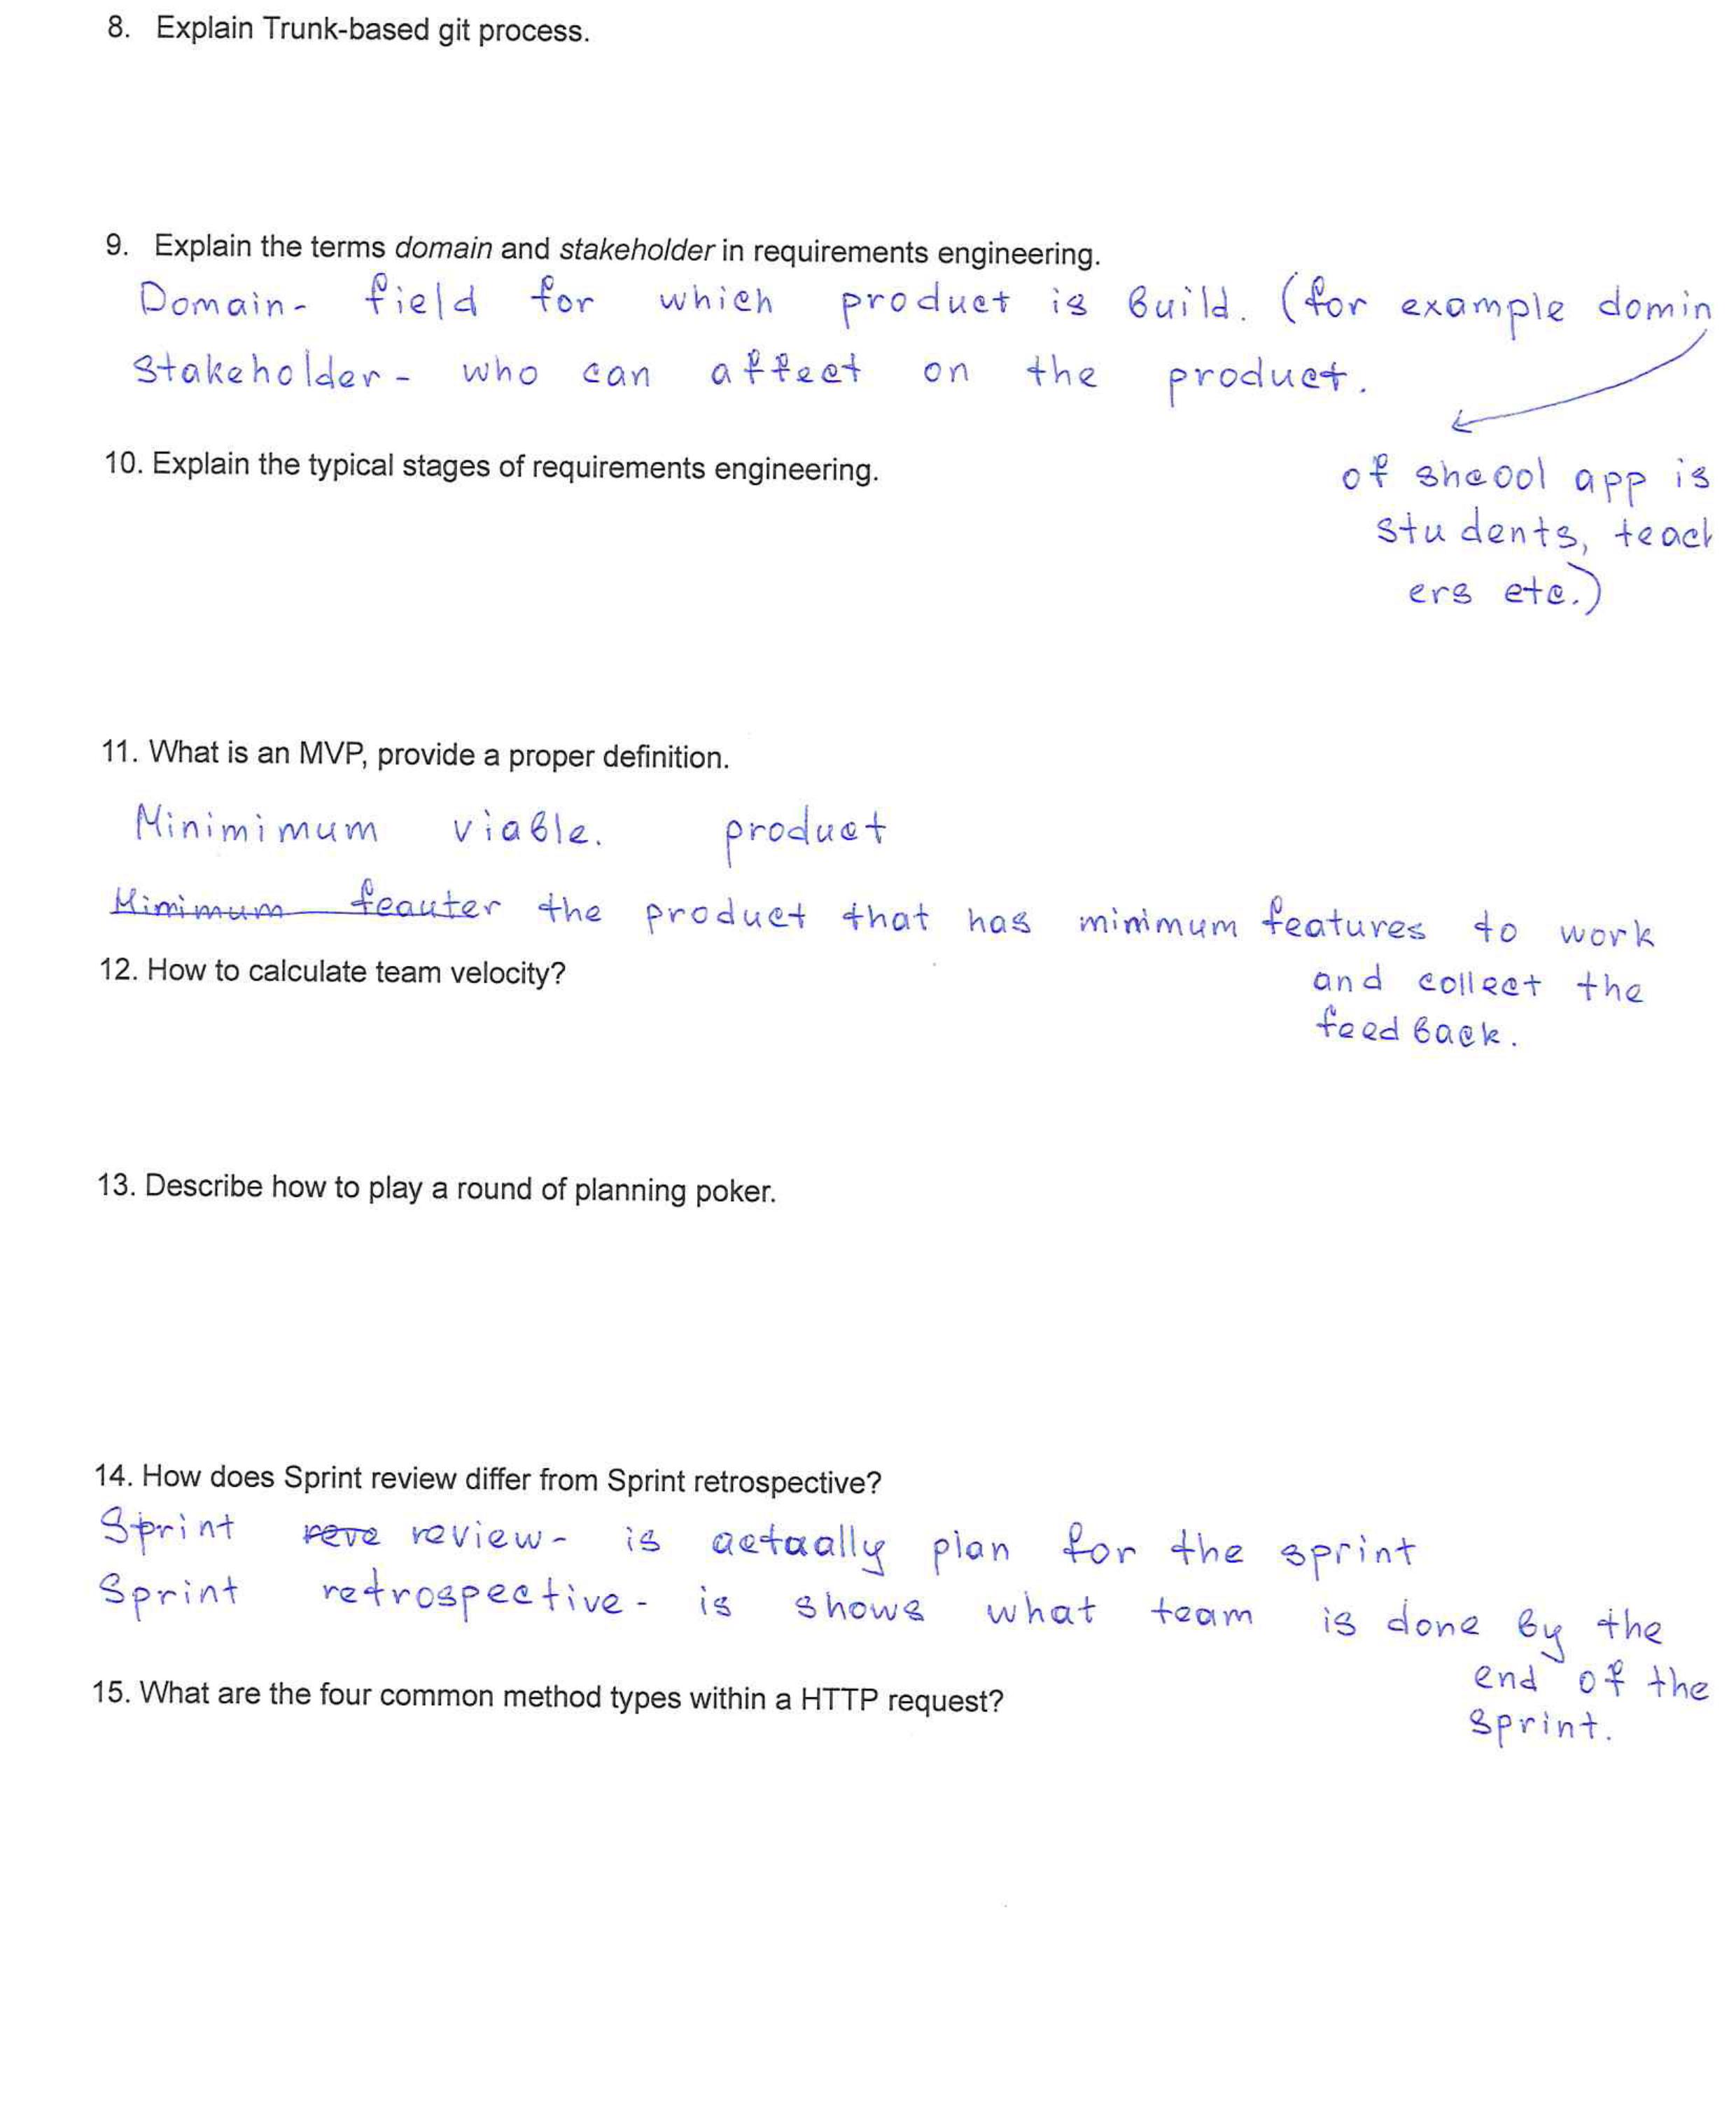 8. Explain Trunk-based git process.
9. Explain the terms domain and stakeholder in requirements engineering.
Domain- field for which product is build. (for example domin
of sheool app is
students, teach
ers etc.)
Stakeholder- who can affect on the product.
10. Explain the typical stages of requirements engineering.
11. What is an MVP, provide a proper definition.
Minimimum viable. product
Minimum feauter the product that has minimum features to work
and collect the
feedback.
12. How to calculate team velocity?
13. Describe how to play a round of planning poker.
14. How does Sprint review differ from Sprint retrospective?
Sprint reve review- is actaally plan for the sprint
Sprint retrospective- is shows what team is done by the
end of the
sprint.
15. What are the four common method types within a HTTP request?